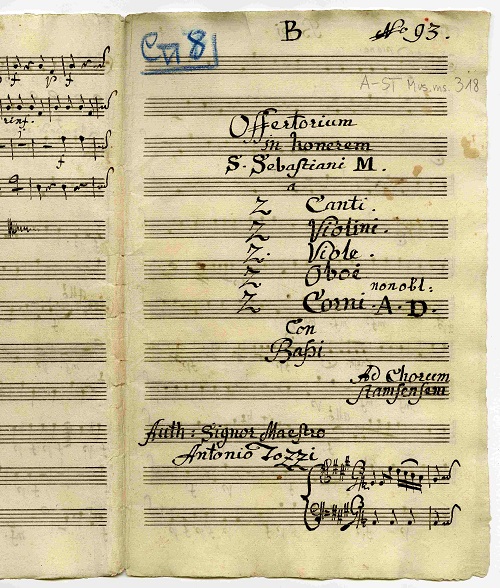 B No 93.
Cπ 8
A-ST Mus.ms. 318
Offertorium
in honerem
S. Sebastiani M.
a
2 Canti.
2 Violini.
2. Viole.
2 Oboe
non obl:
2 Corni. A. D.
Con
Baßi
Ad Chorum
Stamsensem
Auth: Signor Maestro
Antonio Tozzi
f p f
rinf.
f